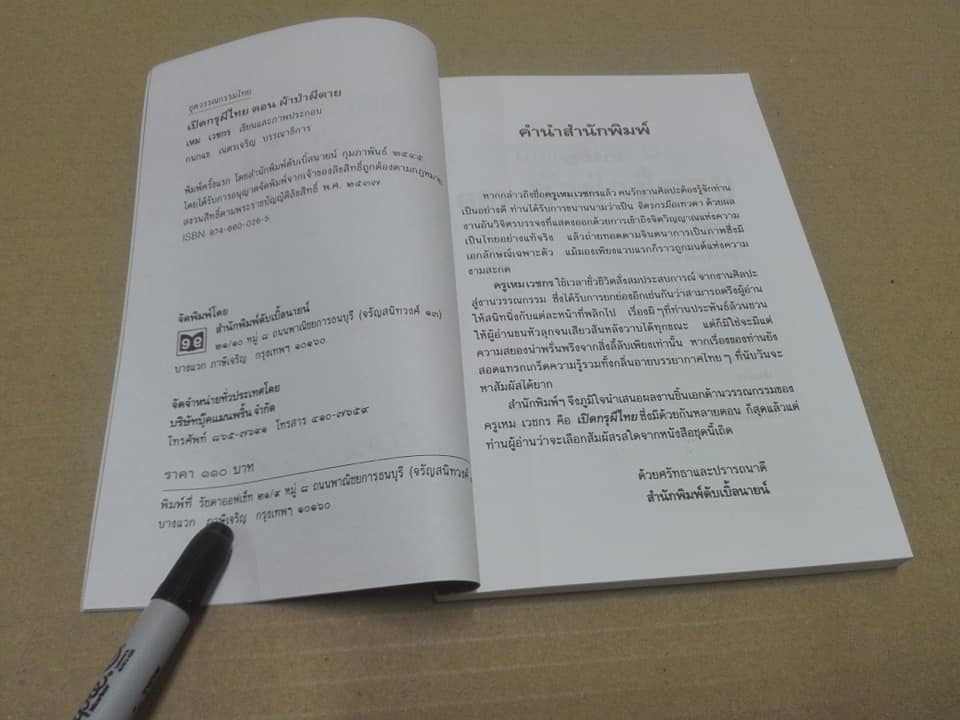 ชุดวรรณกรรมไทย
เปิดกรุผีไทย ตอน ผ้าป่าผีตาย
เหม เวชกร เขียนและภาพประกอบ
กนกแข เนตรเจริญ บรรณาธิการ
พิมพ์ครั้งแรก โดยสำนักพิมพ์ดับเบิ้ลนายน์ กุมภาพันธ์ ๒๕๔๕
โดยได้รับการอนุญาตจัดพิมพ์จากเจ้าของลิขสิทธิ์ถูกต้องตามกฎหมาย
สงวนสิทธิ์ตามพระราชบัญญัติลิขสิทธิ์ พ.ศ. ๒๕๓๗
ISBN 974-660-026-5
จัดพิมพ์โดย
๙๙ สำนักพิมพ์ดับเบิ้ลนายน์
๒๑/๑๐ หมู่ ๘ ถนนพาณิชยการธนบุรี (จรัญสนิทวงศ์ ๑๓)
บางแวก ภาษีเจริญ กรุงเทพฯ ๑๐๑๖๐
จัดจำหน่ายทั่วประเทศโดย
บริษัทบุ๊คแมนพริ้น จำกัด
โทรศัพท์ ๘๖๕-๗๖๙๑ โทรสาร ๔๑๐-๗๖๕๙
ราคา ๑๑๐ บาท
พิมพ์ที่ รัชดาออฟเซ็ท ๒๑/๙ หมู่ ๘ ถนนพาณิชยการธนบุรี (จรัญสนิทวงศ์
บางแวก ภาษีเจริญ กรุงเทพฯ ๑๐๑๖๐
คำนำสำนักพิมพ์
หากกล่าวถึงชื่อครูเหมเวชกรแล้ว คนรักงานศิลปะต้องรู้จักท่าน
เป็นอย่างดี ท่านได้รับการขนานนามว่าเป็น จิตรกรมือเทวดา ด้วยผล
งานอันวิจิตรบรรจงที่แสดงออกด้วยการเข้าถึงจิตวิญญาณแห่งความ
เป็นไทยอย่างแท้จริง แล้วถ่ายทอดตามจินตนาการเป็นภาพซึ่งมี
เอกลักษณ์เฉพาะตัว แม้มองเพียงแวบแรกก็ราวถูกมนต์แห่งความ
งามสะกด
ครูเหมเวชกร ใช้เวลาชั่วชีวิตสั่งสมประสบการณ์ จากงานศิลปะ
สู่งานวรรณกรรม ซึ่งได้รับการยกย่องอีกเช่นกันว่าสามารถตรึงผู้อ่าน
ให้สนิทนิ่งกับแต่ละหน้าที่พลิกไป เรื่องผีๆที่ท่านประพันธ์ล้วนชวน
ให้ผู้อ่านขนหัวลุกจนเสียวสันหลังวาบได้ทุกขณะ แต่ก็มิใช่จะมีแต่
ความสยองน่าพรั่นพรึงจากสิ่งลี้ลับเพียงเท่านั้น หากเรื่องของท่านยัง
สอดแทรกเกร็ดความรู้รวมทั้งกลิ่นอายบรรยากาศไทยๆ ที่นับวันจะ
หาสัมผัสได้ยาก
สำนักพิมพ์ฯ จึงภูมิใจนำเสนอผลงานชิ้นเอกด้านวรรณกรรมของ
ครูเหม เวชกร คือ เปิดกรุผีไทย ซึ่งมีด้วยกันหลายตอน ก็สุดแล้วแต่
ท่านผู้อ่านว่าจะเลือกสัมผัสรสใดจากหนังสือชุดนี้เถิด
ด้วยศรัทธาและปรารถนาดี
สำนักพิมพ์ดับเบิ้ลนายน์